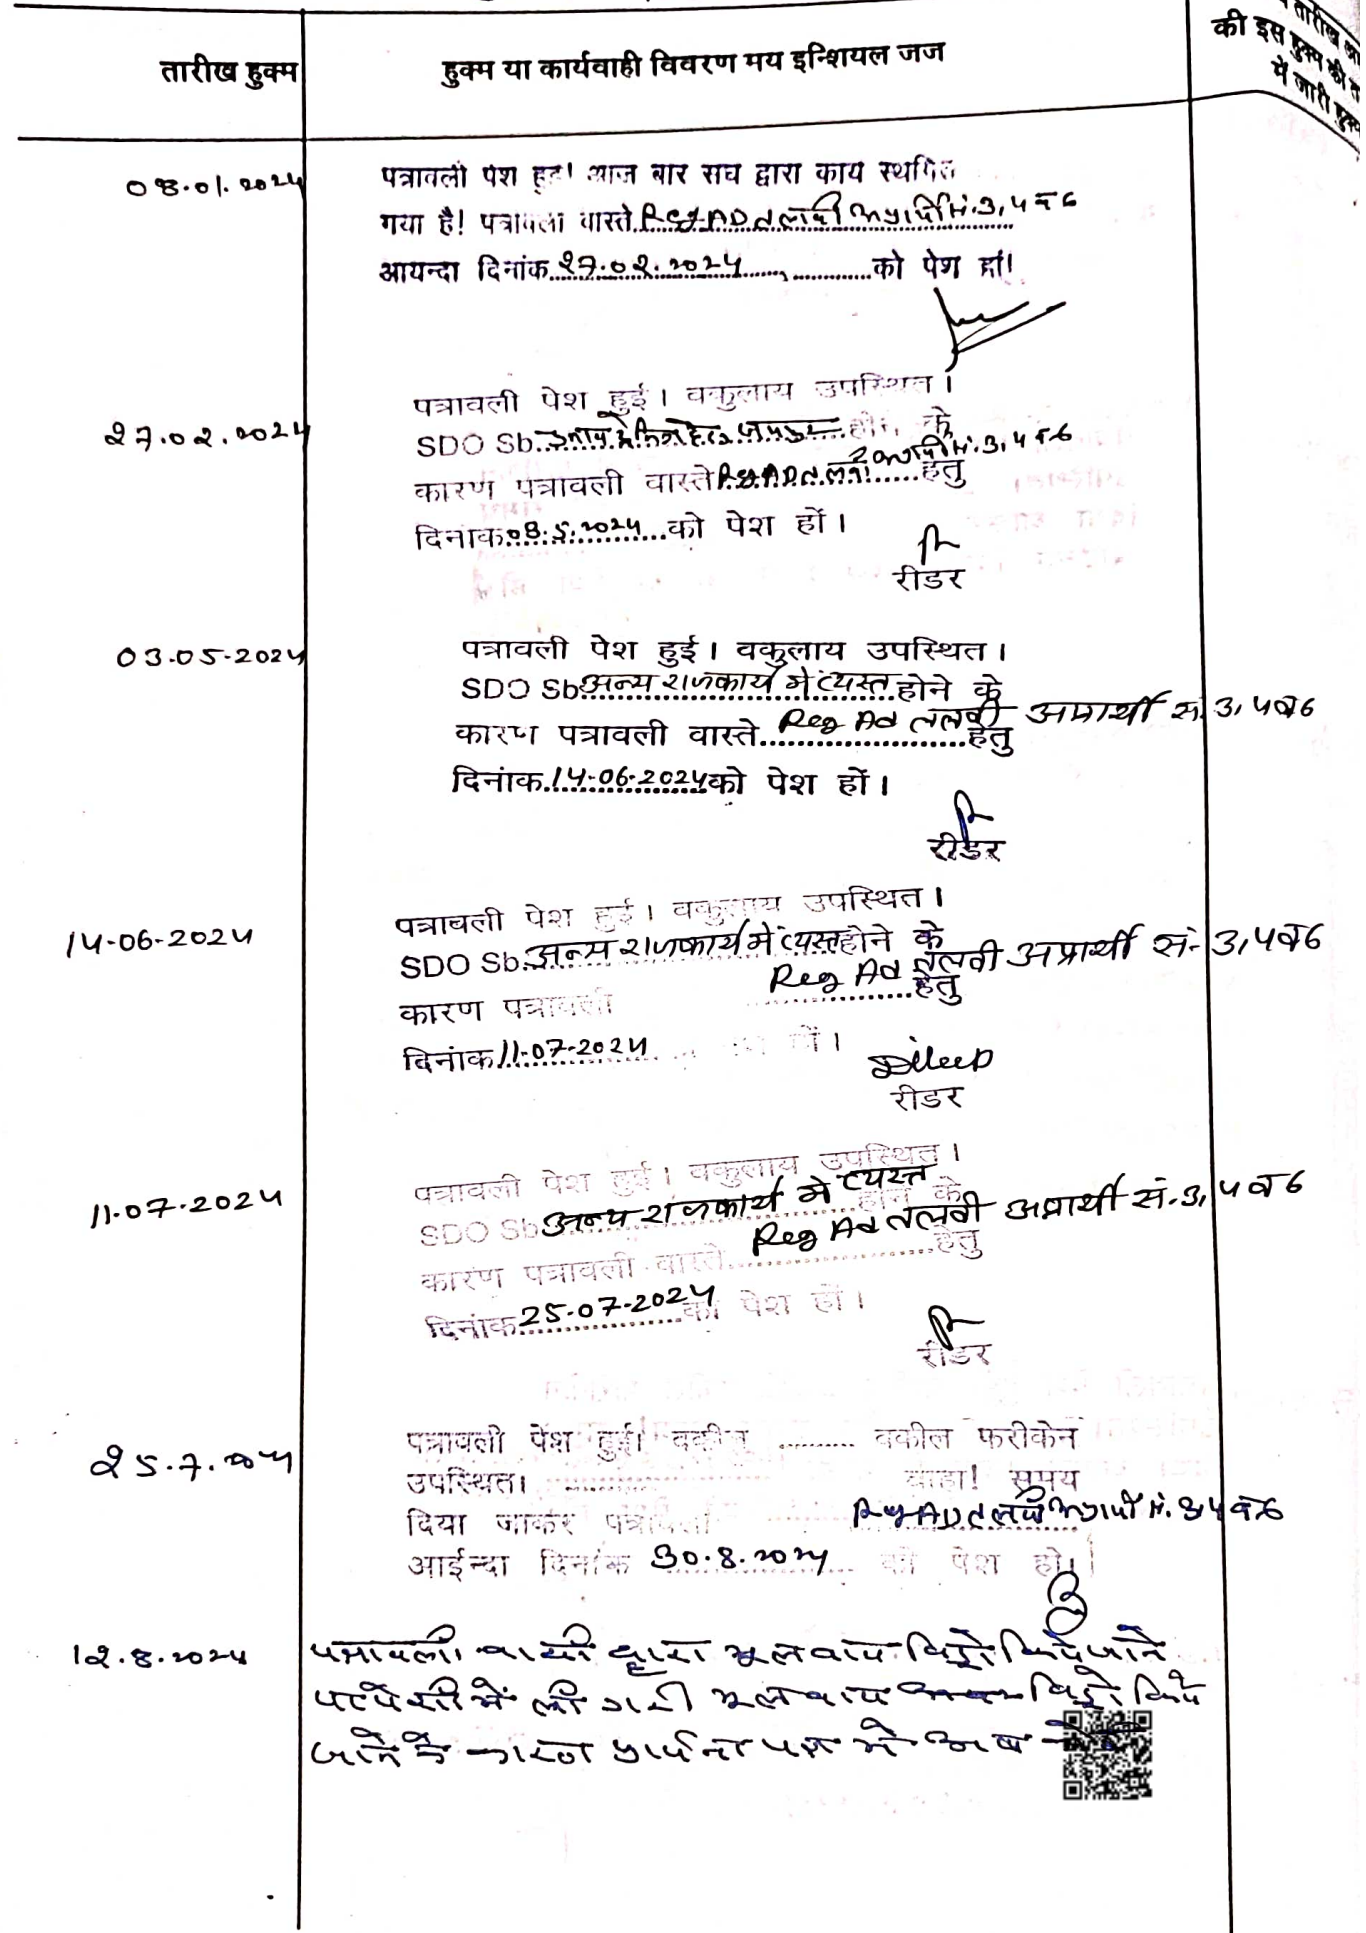 तारीख हुक्म
हुक्म या कार्यवाही विवरण मय इन्शियल जज
की इस हुक्म की
में जारी हुक्म
08.01.2024
पत्रावली पेश हुई! आज बार संघ द्वारा कार्य स्थगित
गया है! पत्रावली वास्ते Reg AD तलबी अप्रार्थी सं. 3, 4 व 6
आयन्दा दिनांक 27.02.2024 को पेश हों!
27.02.2024
पत्रावली पेश हुई। वकुलाय उपस्थित।
SDO Sb. होने के
कारण पत्रावली वास्ते Reg AD तलबी अप्रार्थी सं. 3, 4 व 6 हेतु
दिनांक 03.5.2024 को पेश हों।
रीडर
03.05.2024
पत्रावली पेश हुई। वकुलाय उपस्थित।
SDO Sb. अन्य राजकार्य में व्यस्त होने के
कारण पत्रावली वास्ते Reg Ad तलबी अप्रार्थी सं. 3, 4 व 6 हेतु
दिनांक 14-06-2024 को पेश हों।
रीडर
14-06-2024
पत्रावली पेश हुई। वकुलाय उपस्थित।
SDO Sb. अन्य राजकार्य में व्यस्त होने के
कारण पत्रावली Reg Ad तलबी अप्रार्थी सं. 3, 4 व 6 हेतु
दिनांक 11-07-2024 हों।
Dileep
रीडर
11-07-2024
पत्रावली पेश हुई। वकुलाय उपस्थित।
SDO Sb अन्य राजकार्य में व्यस्त होने के
कारण पत्रावली वास्ते Reg Ad तलबी अप्रार्थी सं. 3, 4 व 6 हेतु
दिनांक 25-07-2024 को पेश हों।
रीडर
25.7.2024
पत्रावली पेश हुई। वकील फरीकेन
उपस्थित। चाहा! समय
दिया जाकर पत्रावली Reg AD तलबी अप्रार्थी सं. 3, 4 व 6
आईन्दा दिनांक 30.8.2024 को पेश हो।
12.8.2024
पत्रावली द्वारा मूलवाद विड्रो किये जाने
पर पेशी में ली गयी मूलवाद विड्रो किये
जाने के कारण प्रार्थना पत्र में अब